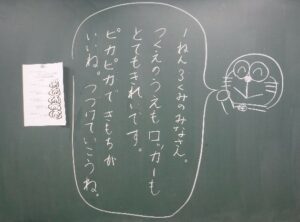 1ねん3くみのみなさん。
つくえのうえもロッカーも
とてもきれいです。
ピカピカできもちが
いいね。つづけていこうね。